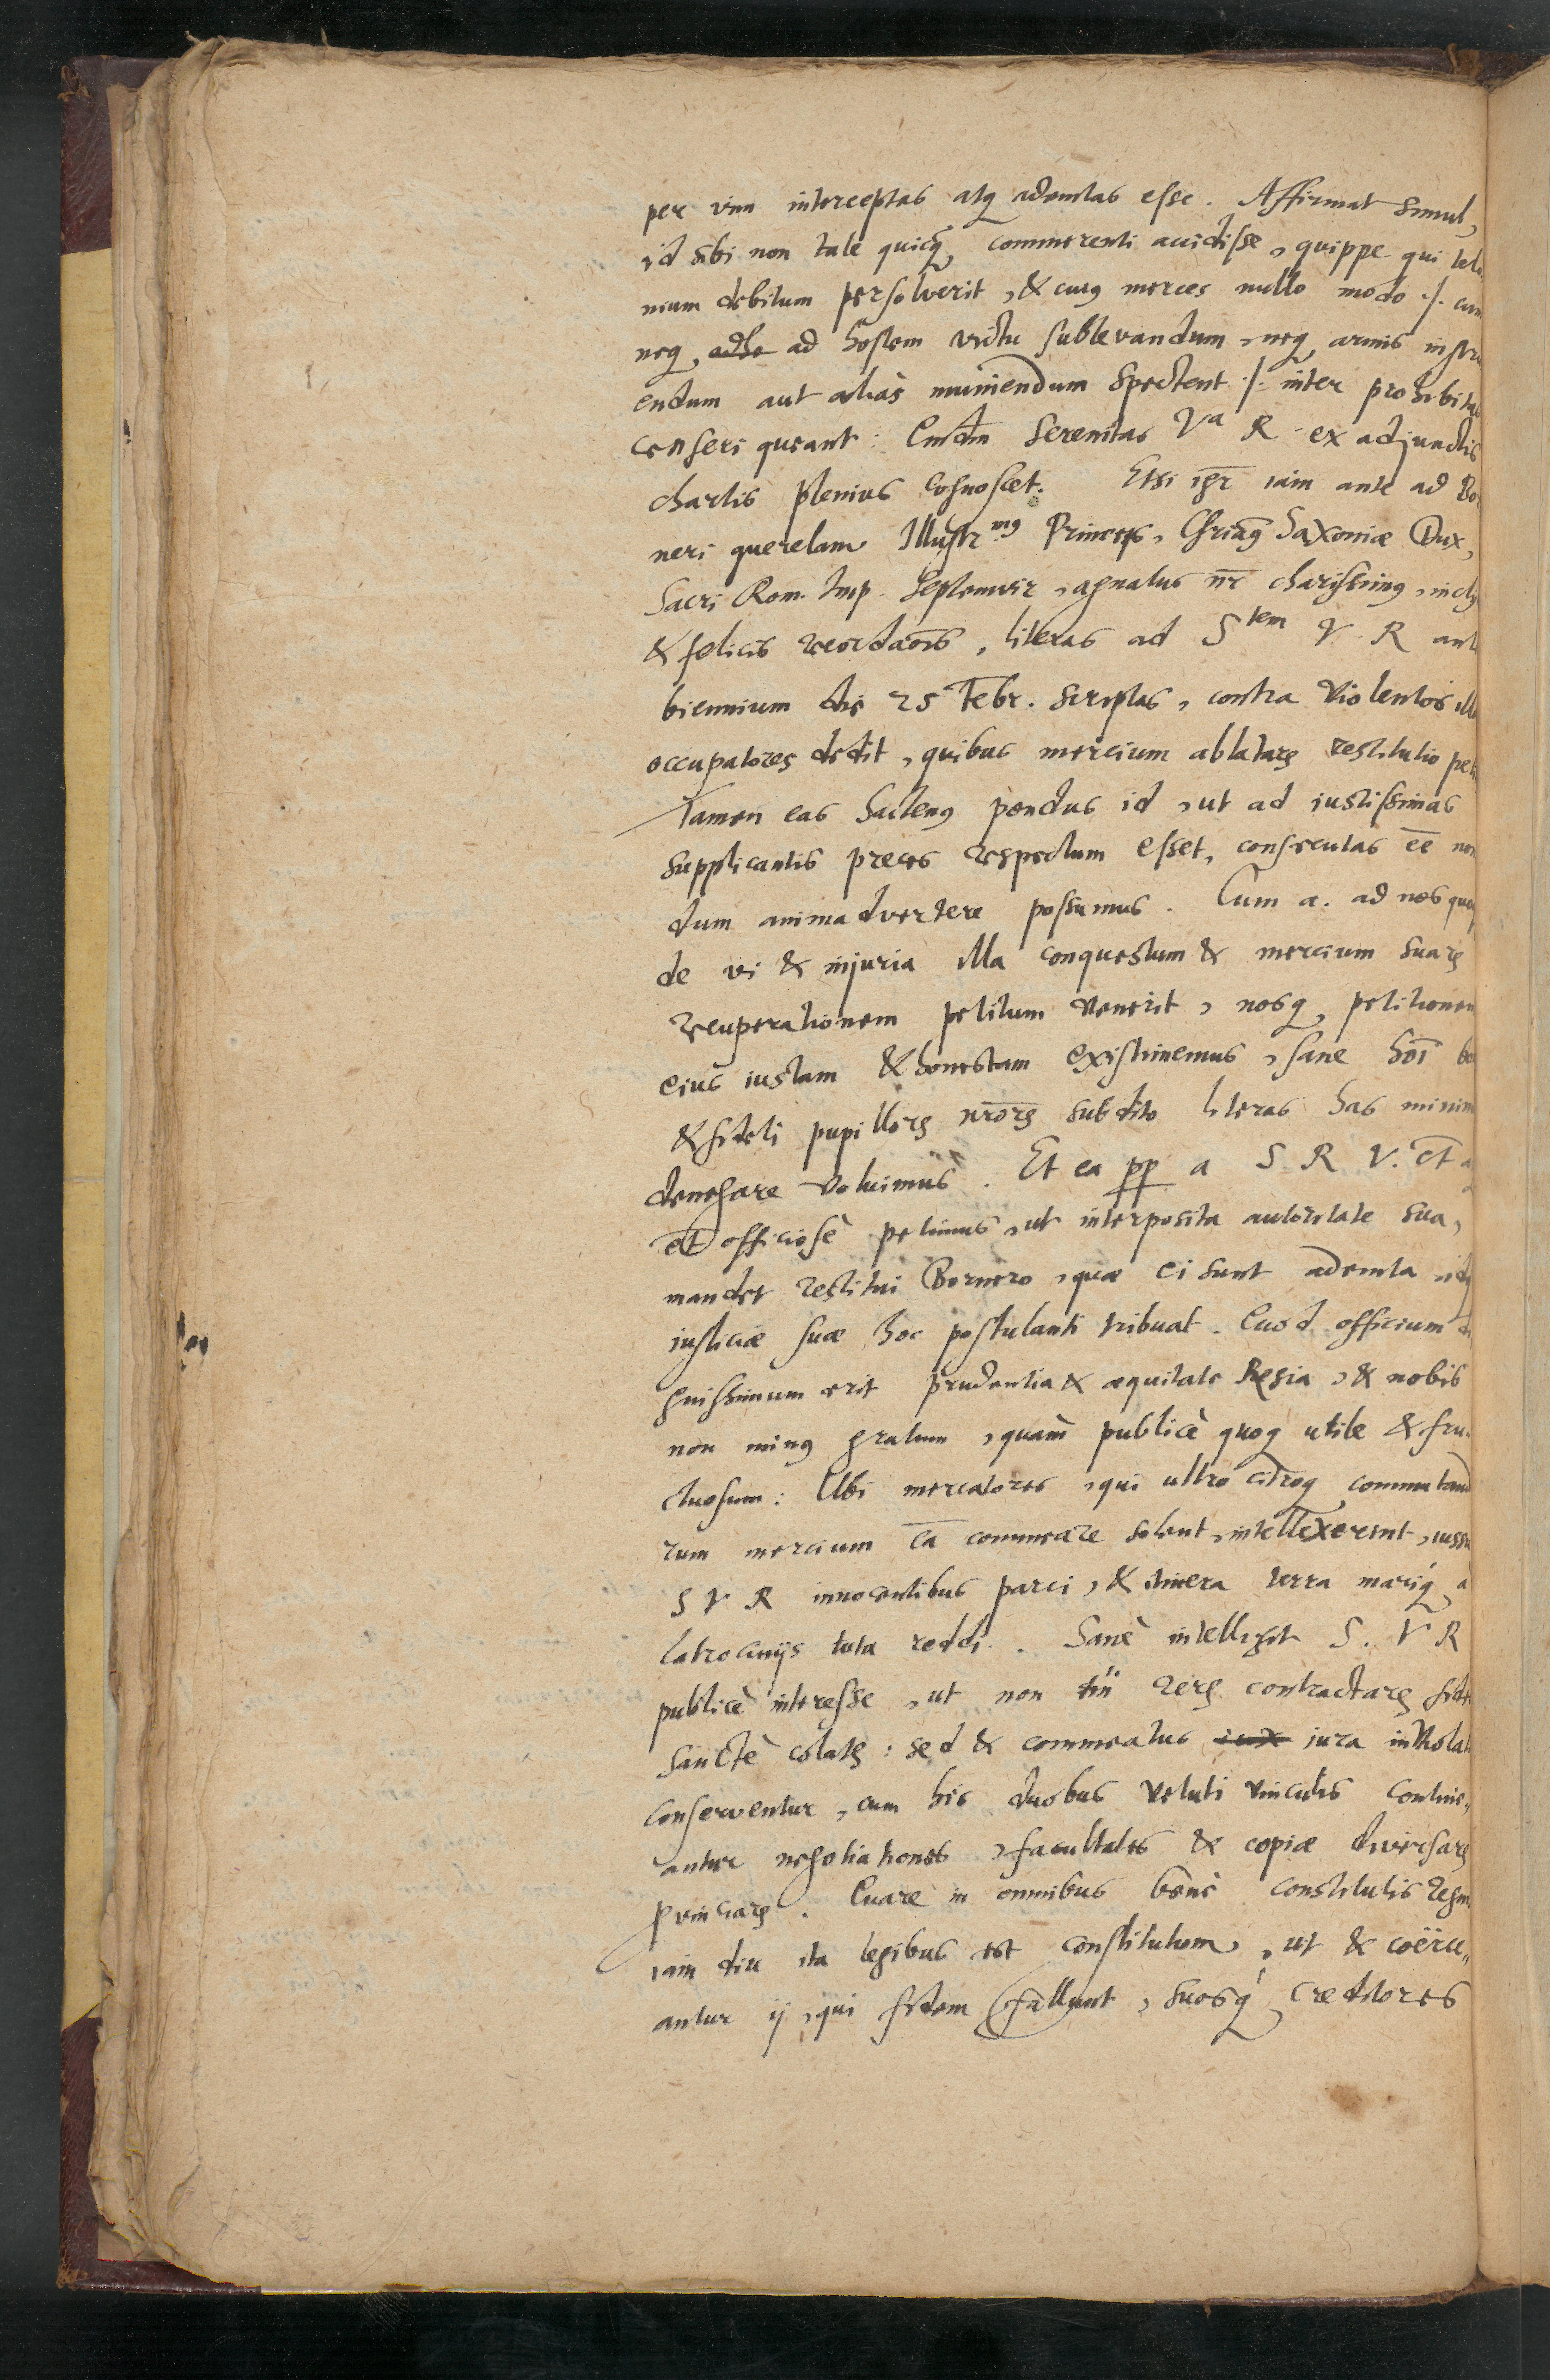 per vim interceptas atq ademtas esse. Affirmat simul,
id sibi non tale quicq commerenti accidisse, quippe qui telo
nium debitum persolverit, & cuiq merces nullo modo ./. cum
neq adhe ad hostem victu sublevandum, neq armis instru
endum aut aliàs muniendum spectent ./. inter prohibitas
censeri queant: Serenitas Vª R ex adjunctis
chartis plenius cognoscet. Etsi igr iam ante ad Bo
neri querelam Illustr.mq Princeps, Chrianq Saxoniæ Dux,
Sacri Rom. Imp. Septemvir, agnatus nr charissimq, incly
& felicis recordaois, literas ad Stem V. R ante
biennium die 25 Febr. scriptas, contra violentos illos
occupatores dedit, quibus mercium ablatarꝝ restitutio pet
Tamen eas hactenq pondus id, ut ad iustissimas
supplicantis preces respectum esset, consecutas eē non
dum animadvertere possumus. Cum a. ad nos quoq
de vi & injuria illa conquestum & mercium suarꝝ
recuperationem petitum venerit, nosq petitionem
eius iustam & honestam existimemus, sane hoī bo
& fideli pupillorꝝ nrorꝝ subdito literas has minime
denegare voluimus. Et ea pp a S R V. et
et officiosè petimus, ut interposita autoritate sua,
mandet restitui Bornero, quæ ei sunt ademta idq
iusticiæ suæ hoc postulanti tribuat. Quod officium di
gnissimum erit prudentia & æquitate Regia, & nobis
non minq gratum, quam publicè quoq utile & fru
ctuosum: Ubi mercatores, qui ultro citroq commutand
rum mercium cā commeare solent, intellexerint, iussu
S V R innocentibus parci, & itinera terra mariq a
latrocinijs tuta reddi. Sanè intelligit S. V R
publicè interesse, ut non tm̄ rerꝝ contractarꝝ fides
sanctè colatꝝ: sed & commeatus iux jura inviolata
conserventur, cum his duobus veluti vinculis contine„
antur negotiationes, facultates & copiæ diversarꝝ
pvinciarꝝ. Quare in omnibus benè constitutis regn
iam diu ita legibus est constitutum, ut & coërce„
antur ij, qui fidem fallunt, suosq creditores